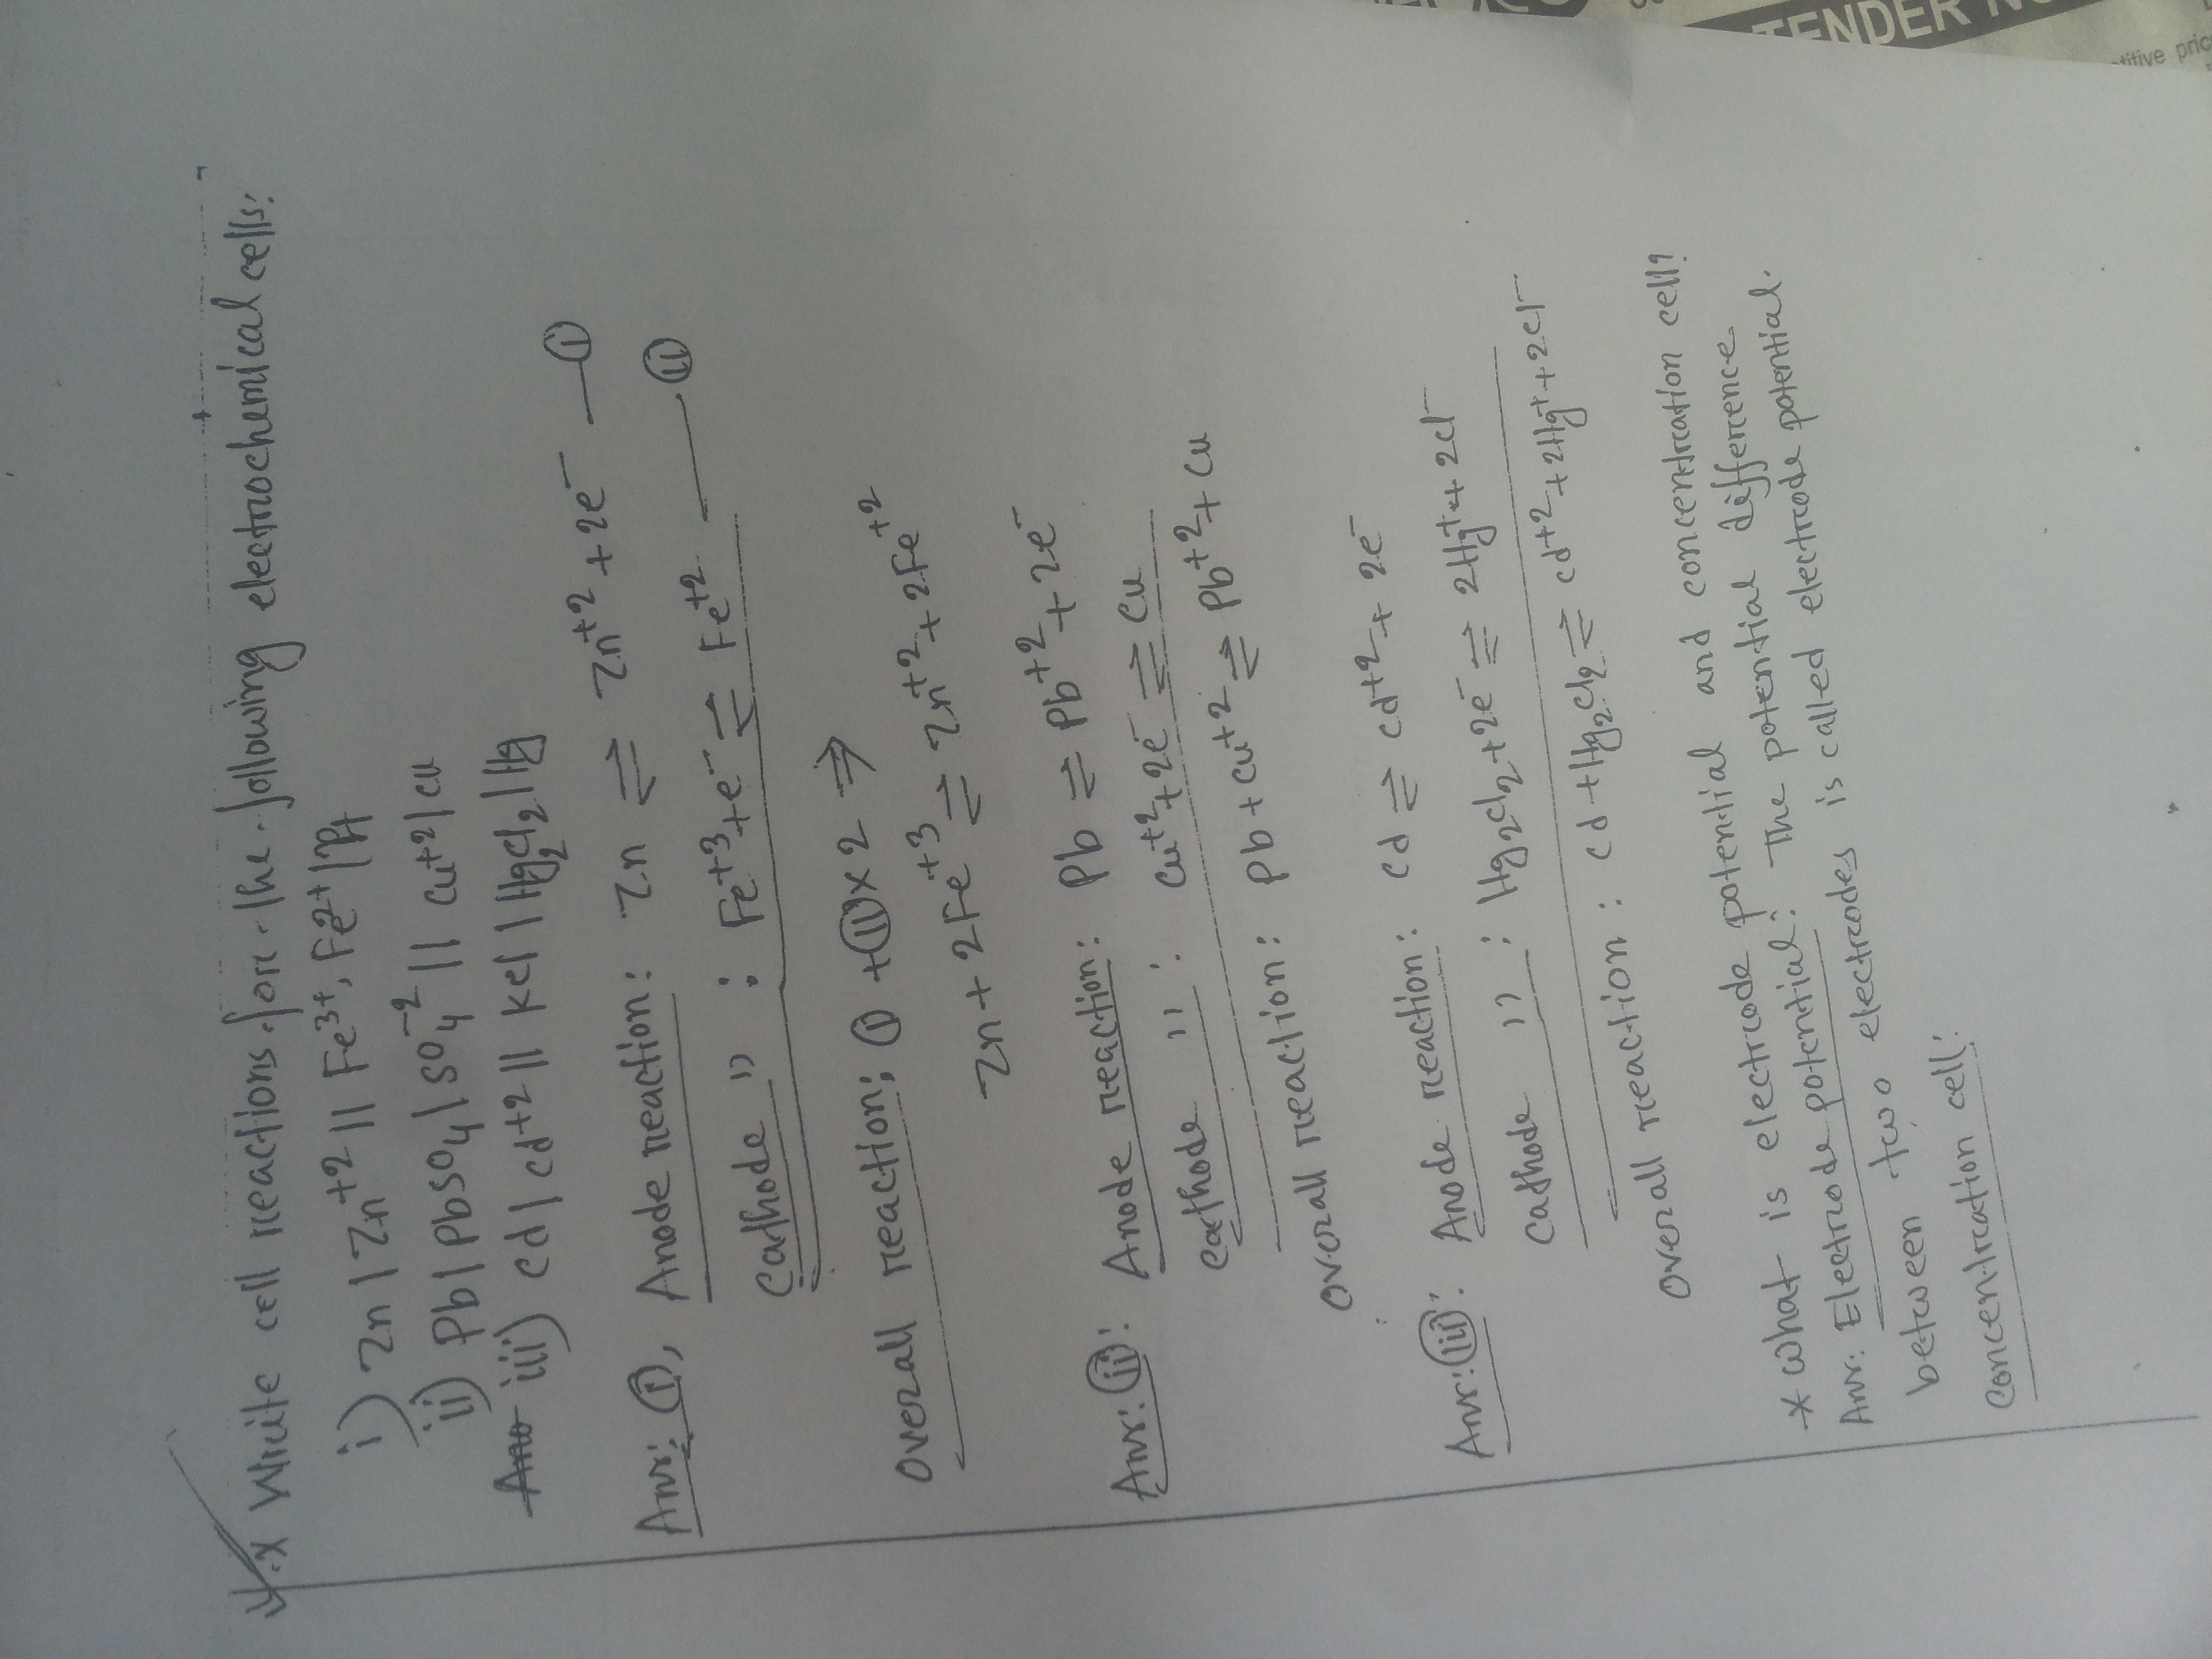 TENDER NO
titive pric
* Write cell reactions for the following electrochemical cells:
i) Zn | Zn⁺² || Fe³⁺, Fe²⁺ | Pt
ii) Pb | PbSO₄ | SO₄⁻² || Cu⁺² | Cu
iii) Cd | Cd⁺² || KCl | Hg₂Cl₂ | Hg
Ans: (i), Anode reaction: Zn ⇌ Zn⁺² + 2e⁻ —(i)
Cathode " : Fe⁺³ + e⁻ ⇌ Fe⁺² —(ii)
Overall reaction: (i) + (ii) × 2 ⇒
Zn + 2Fe⁺³ ⇌ Zn⁺² + 2Fe⁺²
Ans: (ii): Anode reaction: Pb ⇌ Pb⁺² + 2e⁻
Cathode " : Cu⁺² + 2e⁻ ⇌ Cu
Overall reaction: Pb + Cu⁺² ⇌ Pb⁺² + Cu
Ans: (iii): Anode reaction: Cd ⇌ Cd⁺² + 2e⁻
Cathode " : Hg₂Cl₂ + 2e⁻ ⇌ 2Hg⁺ + 2Cl⁻
Overall reaction: Cd + Hg₂Cl₂ ⇌ Cd⁺² + 2Hg⁺ + 2Cl⁻
* What is electrode potential and concentration cell?
Ans: Electrode potential: The potential difference
between two electrodes is called electrode potential.
Concentration cell: